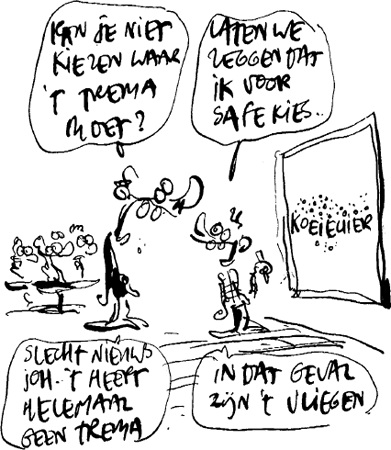 KAN JE NIET
KIEZEN WAAR
'T TREMA
MOET?
LATEN WE
ZEGGEN DAT
IK VOOR
SAFE KIES..
KOEIEUIER
SLECHT NIEUWS
JOH. 'T HEEFT
HELEMAAL
GEEN TREMA
IN DAT GEVAL
ZIJN 'T VLIEGEN